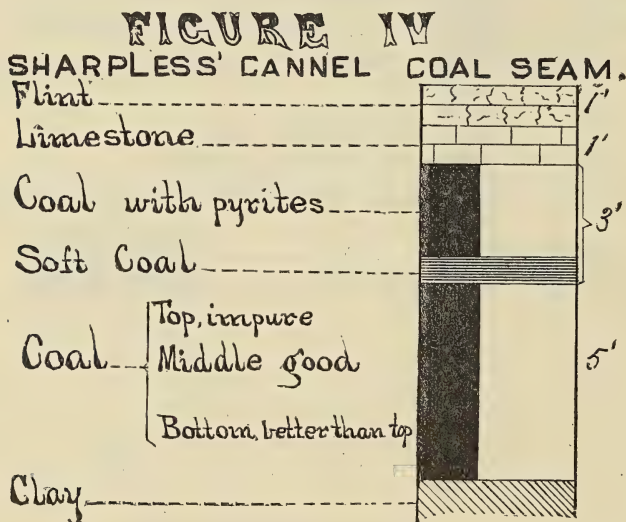 FIGURE IV
SHARPLESS' CANNEL COAL SEAM.
Flint
1'
Limestone
1'
Coal with pyrites
3'
Soft Coal
Coal
Top, impure
Middle good
5'
Bottom, better than top
Clay